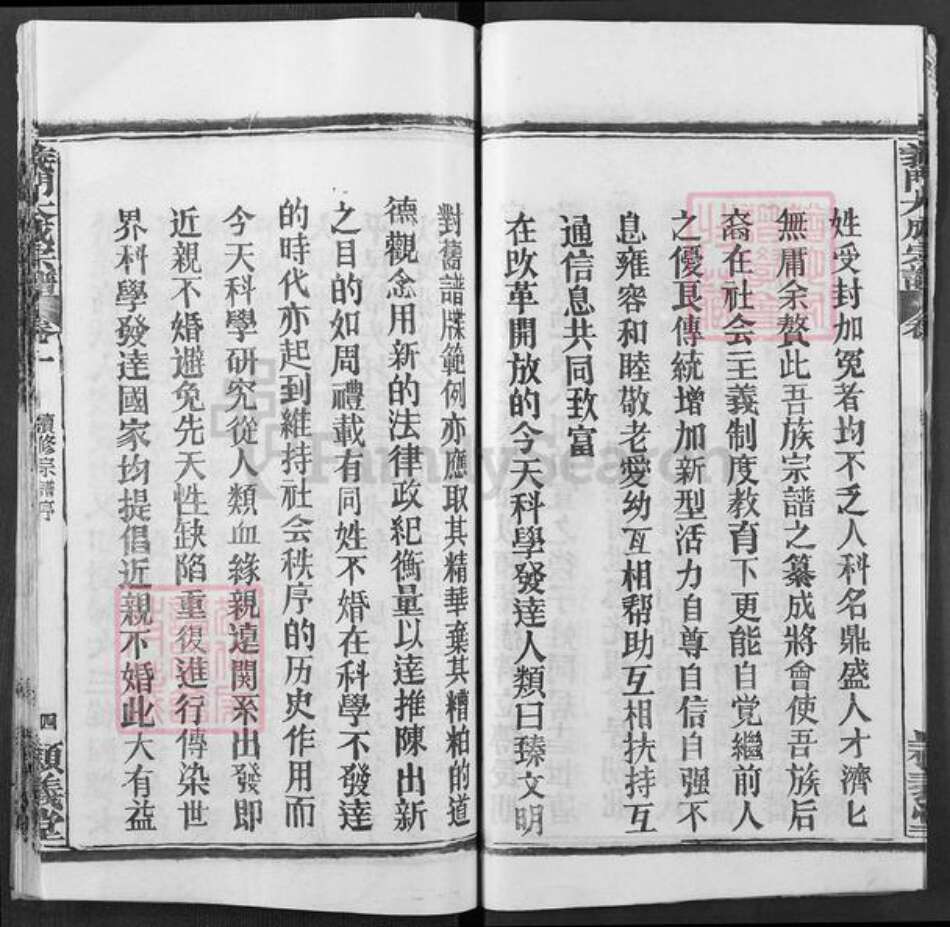 姓受封加冕者均不乏人科名鼎盛人才濟匕
無庸余贅此吾族宗譜之纂成將會使吾族后
裔在社会主義制度教育下更能自觉繼前人
之優良傳統增加新型活力自尊自信自强不
息雍容和睦敬老愛幼互相帮助互相扶持互
通信息共同致富
在改革開放的今天科學發達人類日臻文明
對舊譜牒範例亦應取其精華棄其糟粕的道
德觀念用新的法律政紀衡量以達推陳出新
之目的如周禮載有同姓不婚在科學不發達
的時代亦起到維持社会秩序的历史作用而
今天科學研究從人類血緣親遠関系出發即
近親不婚避免先天性缺陷重復進行傳染世
界科學發达國家均提倡近親不婚此大有益
義門大成宗譜
卷一
續修宗譜序
四
FamilySearch